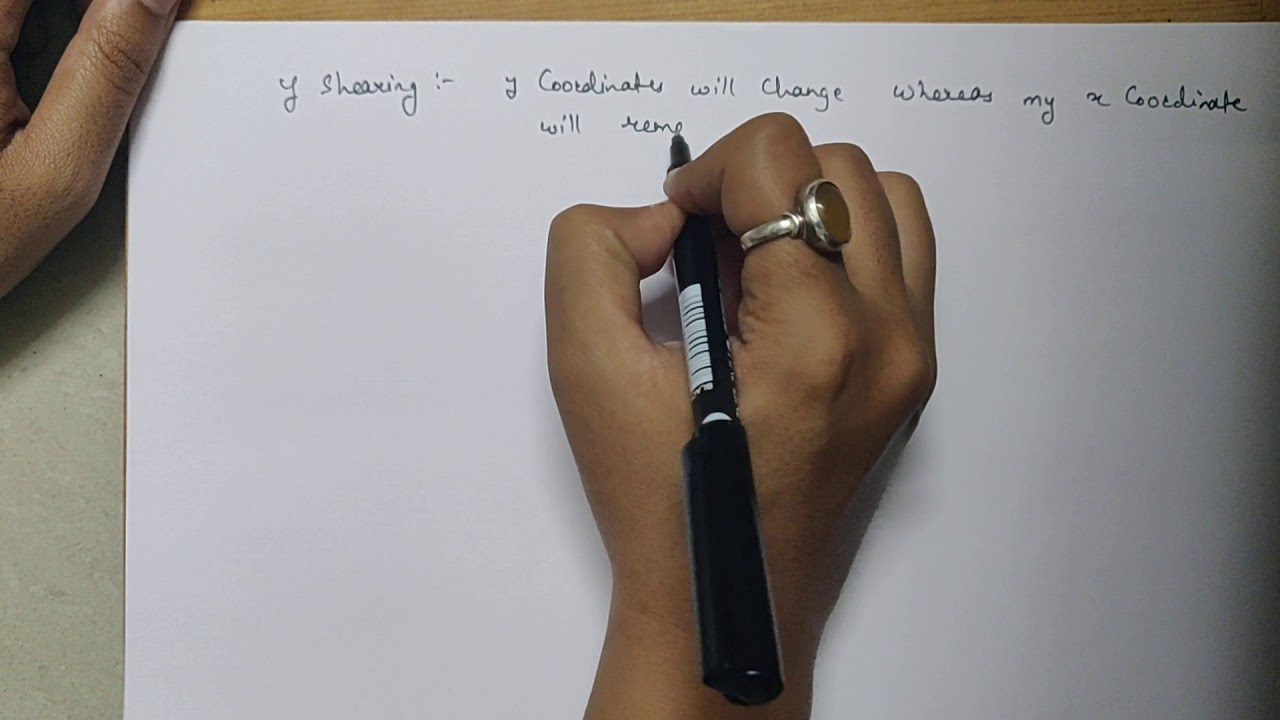 y Shearing :- y Coordinates will Change whereas my x Coordinate
will rema